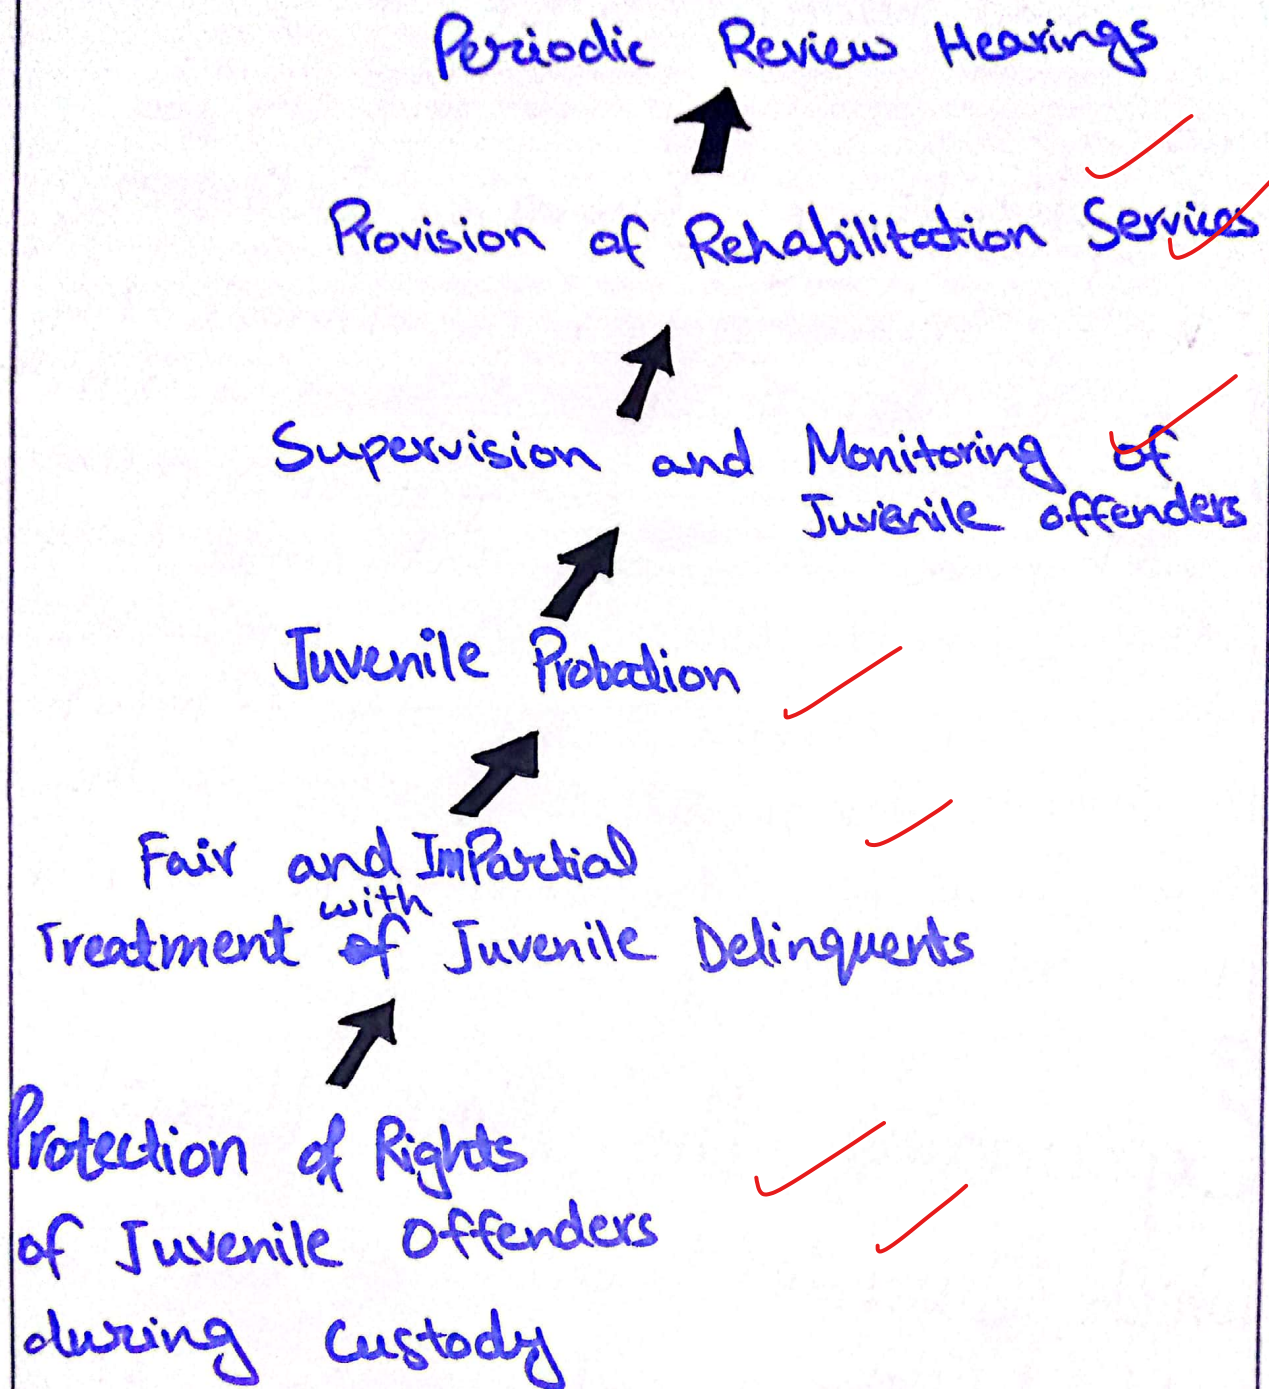 Periodic Review Hearings
Provision of Rehabilitation Services
Supervision and Monitoring of
Juvenile offenders
Juvenile Probation
Fair and Impartial
with
Treatment of Juvenile Delinquents
Protection of Rights
of Juvenile Offenders
during Custody